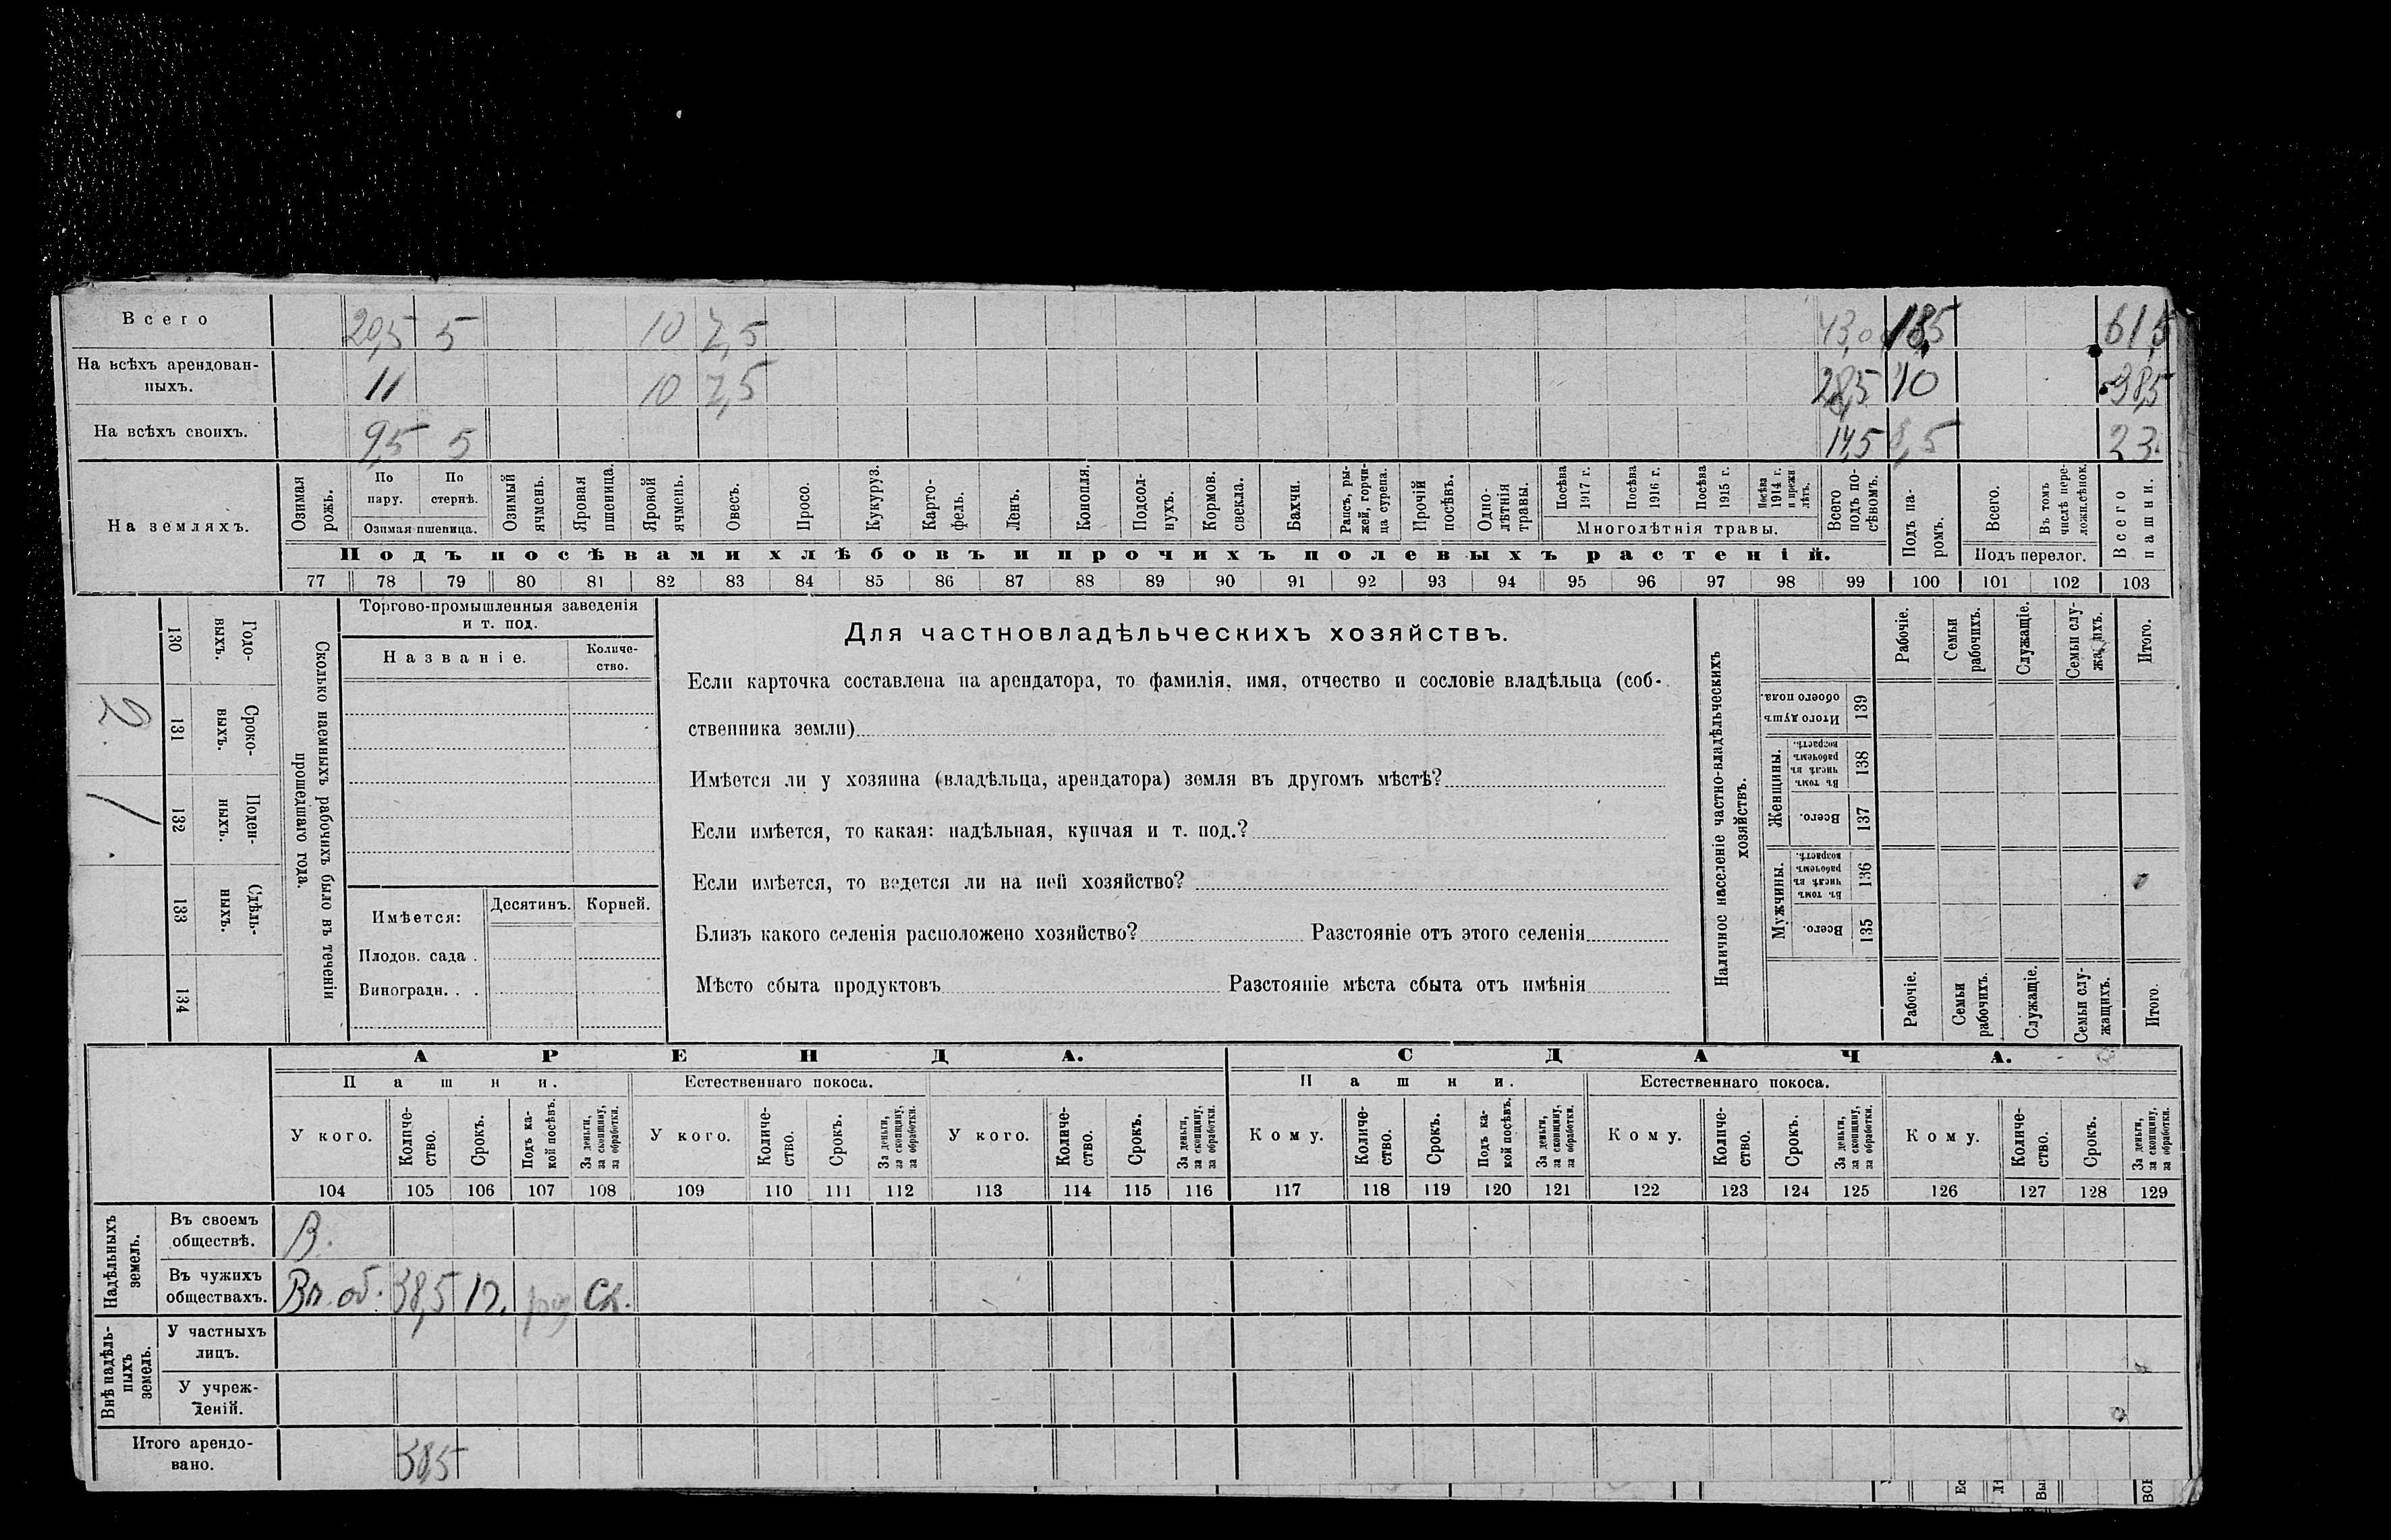 Всего 20,5 5 10 7,5 43,0 18,5 61,5
На всѣхъ арендован-
ныхъ. 11 10 7,5 28,5 10 38,5
На всѣхъ своихъ. 9,5 5 14,5 8,5 23
На земляхъ.
Озимая рожь.
По пару.
По стернѣ.
Озимая пшеница.
Озимый ячмень.
Яровая пшеница.
Яровой ячмень.
Овесъ.
Просо.
Кукуруз.
Карто-
фель.
Ленъ.
Конопля.
Подсол-
нухъ.
Кормов. свекла.
Бахчи.
Рапсъ, ры-
жей, горчи-
ца сурепа.
Прочій посѣвъ.
Одно-
лѣтнія травы.
Посѣва 1917 г.
Посѣва 1916 г.
Посѣва 1915 г.
Посѣва 1914 г. и прежн лѣтъ.
Многолѣтнія травы.
Всего подъ по-
сѣвомъ.
Подъ па-
ромъ.
Всего.
Въ томъ числѣ пере-
ложн.сѣнок.
Подъ перелог.
Всего пашни.
Подъ посѣвами хлѣбовъ и прочихъ полевыхъ растеній.
77 78 79 80 81 82 83 84 85 86 87 88 89 90 91 92 93 94 95 96 97 98 99 100 101 102 103
Сколько наемныхъ рабочихъ было въ теченіи
прошедшаго года.
Годо-
выхъ.
130
Сроко-
выхъ.
131
2
Поден-
ныхъ.
132
Сдѣль-
ныхъ.
133
134
Торгово-промышленныя заведенія
и т. под.
Названіе.
Количе-
ство.
Имѣется:
Десятинъ.
Корней.
Плодов. сада .
Виноградн. . .
Для частновладѣльческихъ хозяйствъ.
Если карточка составлена на арендатора, то фамилія, имя, отчество и сословіе владѣльца (соб-
ственника земли)
Имѣется ли у хозяина (владѣльца, арендатора) земля въ другомъ мѣстѣ?
Если имѣется, то какая: надѣльная, купчая и т. под.?
Если имѣется, то ведется ли на ней хозяйство?
Близъ какого селенія расположено хозяйство? Разстояніе отъ этого селенія
Мѣсто сбыта продуктовъ Разстояніе мѣста сбыта отъ имѣнія
Наличное населеніе частно-владѣльческихъ
хозяйствъ.
Рабочіе.
Семьи рабочихъ.
Служащіе.
Семьи слу-
жащихъ.
Итого.
Итого душъ обоего пола.
139
Женщины.
Въ томъ числѣ въ рабочемъ возрастѣ.
138
Всего.
137
Мужчины.
Въ томъ числѣ въ рабочемъ возрастѣ.
136
Всего.
135
Рабочіе.
Семьи рабочихъ.
Служащіе.
Семьи слу-
жащихъ.
Итого.
АРЕНДА. СДАЧА.
Пашни. Естественнаго покоса. Пашни. Естественнаго покоса.
У кого.
Количе-
ство.
Срокъ.
Подъ ка-
кой посѣвъ.
За деньги, за скопщину, за обработки.
У кого.
Количе-
ство.
Срокъ.
За деньги, за скопщину, за обработки.
У кого.
Количе-
ство.
Срокъ.
За деньги, за скопщину, за обработки.
Кому.
Количе-
ство.
Срокъ.
Подъ ка-
кой посѣвъ.
За деньги, за скопщину, за обработки.
Кому.
Количе-
ство.
Срокъ.
За деньги, за скопщину, за обработки.
Кому.
Количе-
ство.
Срокъ.
За деньги, за скопщину, за обработки.
104 105 106 107 108 109 110 111 112 113 114 115 116 117 118 119 120 121 122 123 124 125 126 127 128 129
Надѣльныхъ земель.
Въ своемъ
обществѣ. В.
Въ чужихъ
обществахъ. 38,5 Ск.
Внѣ надѣль-
ныхъ земель.
У частныхъ
лицъ.
У учреж-
деній.
Итого арендо-
вано. 38,5